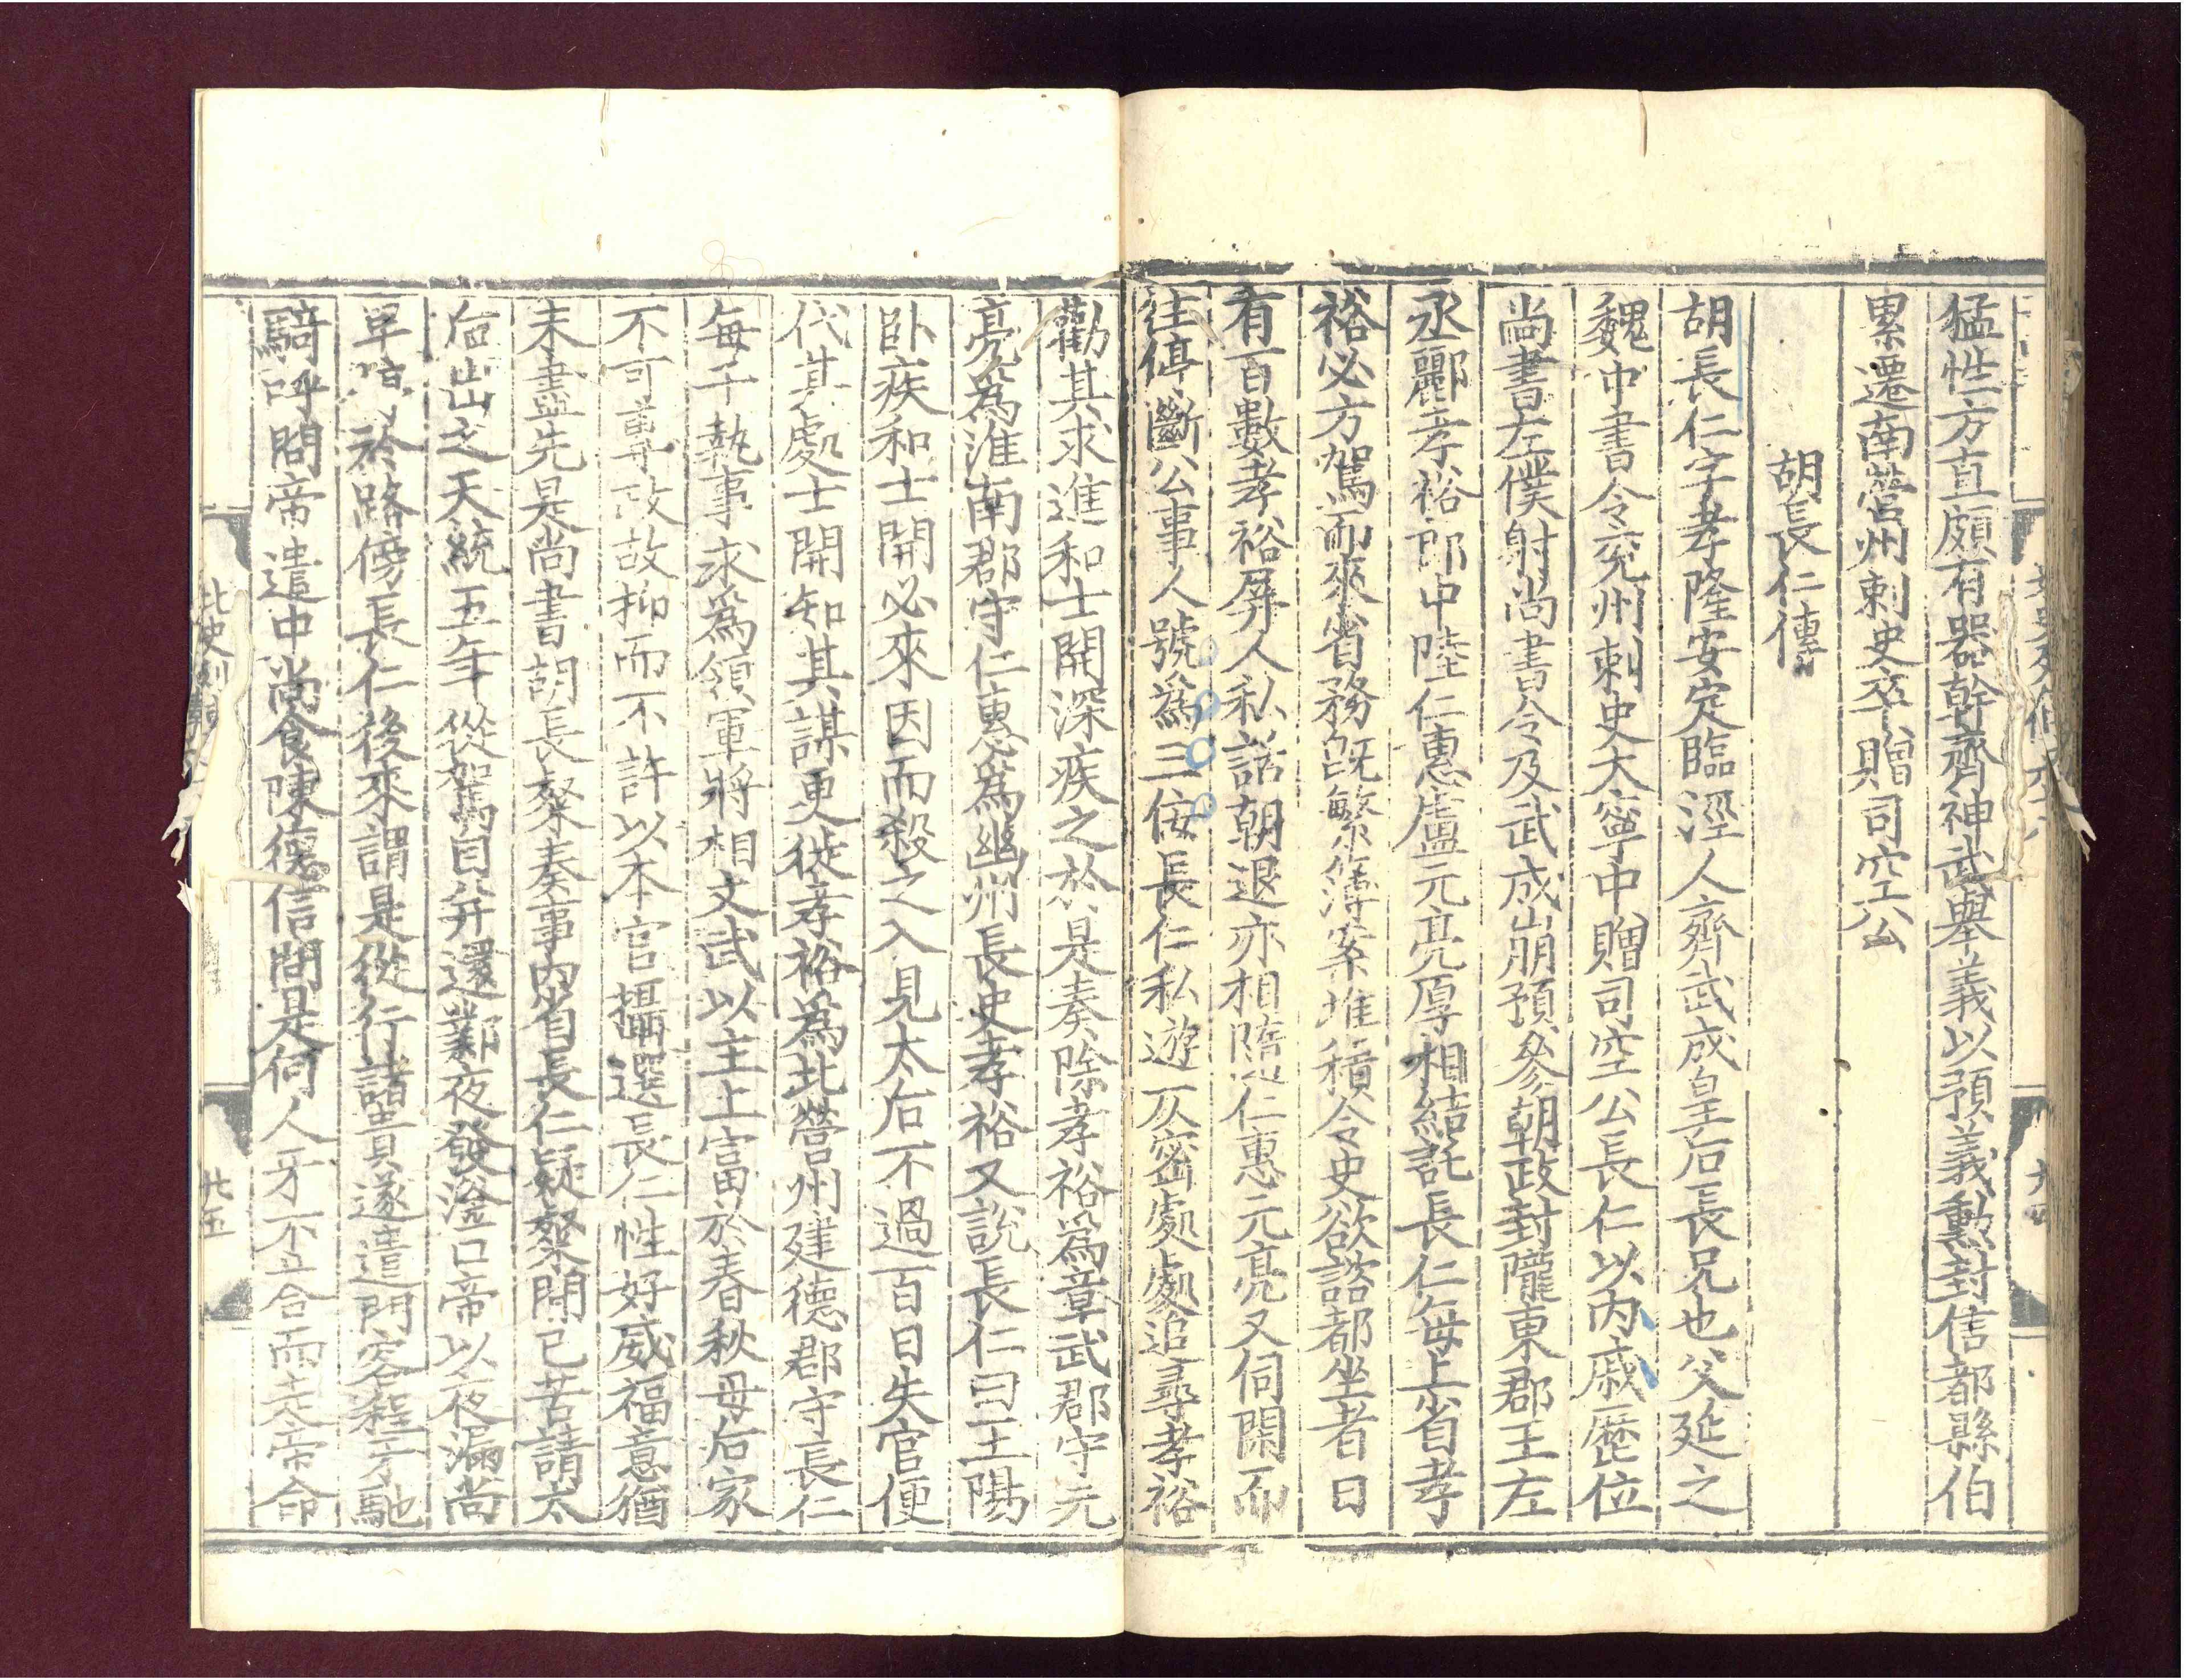 猛性方直頗有器幹齊神武舉義以預義勳封信都縣伯
累遷南營州刺史卒贈司空公
胡長仁傳
胡長仁字孝隆安定臨涇人齊武成皇后長兄也父延之
魏中書令兖州刺史大寧中贈司空公長仁以内戚歷位
尚書左僕射尚書令及武成崩預參朝政封隴東郡王左
丞酈孝裕郎中陸仁惠盧元亮厚相結託長仁每上省孝
裕必方駕而來省務旣繁簿案堆積令史欲諮都坐者日
有百數孝裕屏人私話朝退亦相隨仁惠元亮又伺閑而
往停斷公事人號爲三佞長仁私遊仄密處處追尋孝裕
勸其求進和士開深疾之於是奏除孝裕爲章武郡守元
亮爲淮南郡守仁惠爲幽州長史孝裕又說長仁曰王陽
卧疾和士開必來因而殺之入見太后不過百日失官便
代其處士開知其謀更徙孝裕爲北營州建德郡守長仁
每干執事求爲領軍將相文武以主上富於春秋母后家
不可專政故抑而不許以本官攝選長仁性好威福意猶
未盡先是尚書胡長粲奏事内省長仁疑粲間己苦請太
后出之天統五年從駕自并還鄴夜發滏口帝以夜漏尚
早 於路傍長仁後來謂是從行諸貴遂遣門客程牙馳
騎呼問帝遣中尚食陳德信問是何人牙不答而走帝命
北史列
廿五